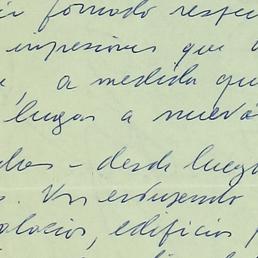 formado respe
impresiones que
, a medida qu
lugar a nuev
– desde luego
s. Van
palacios, edificios